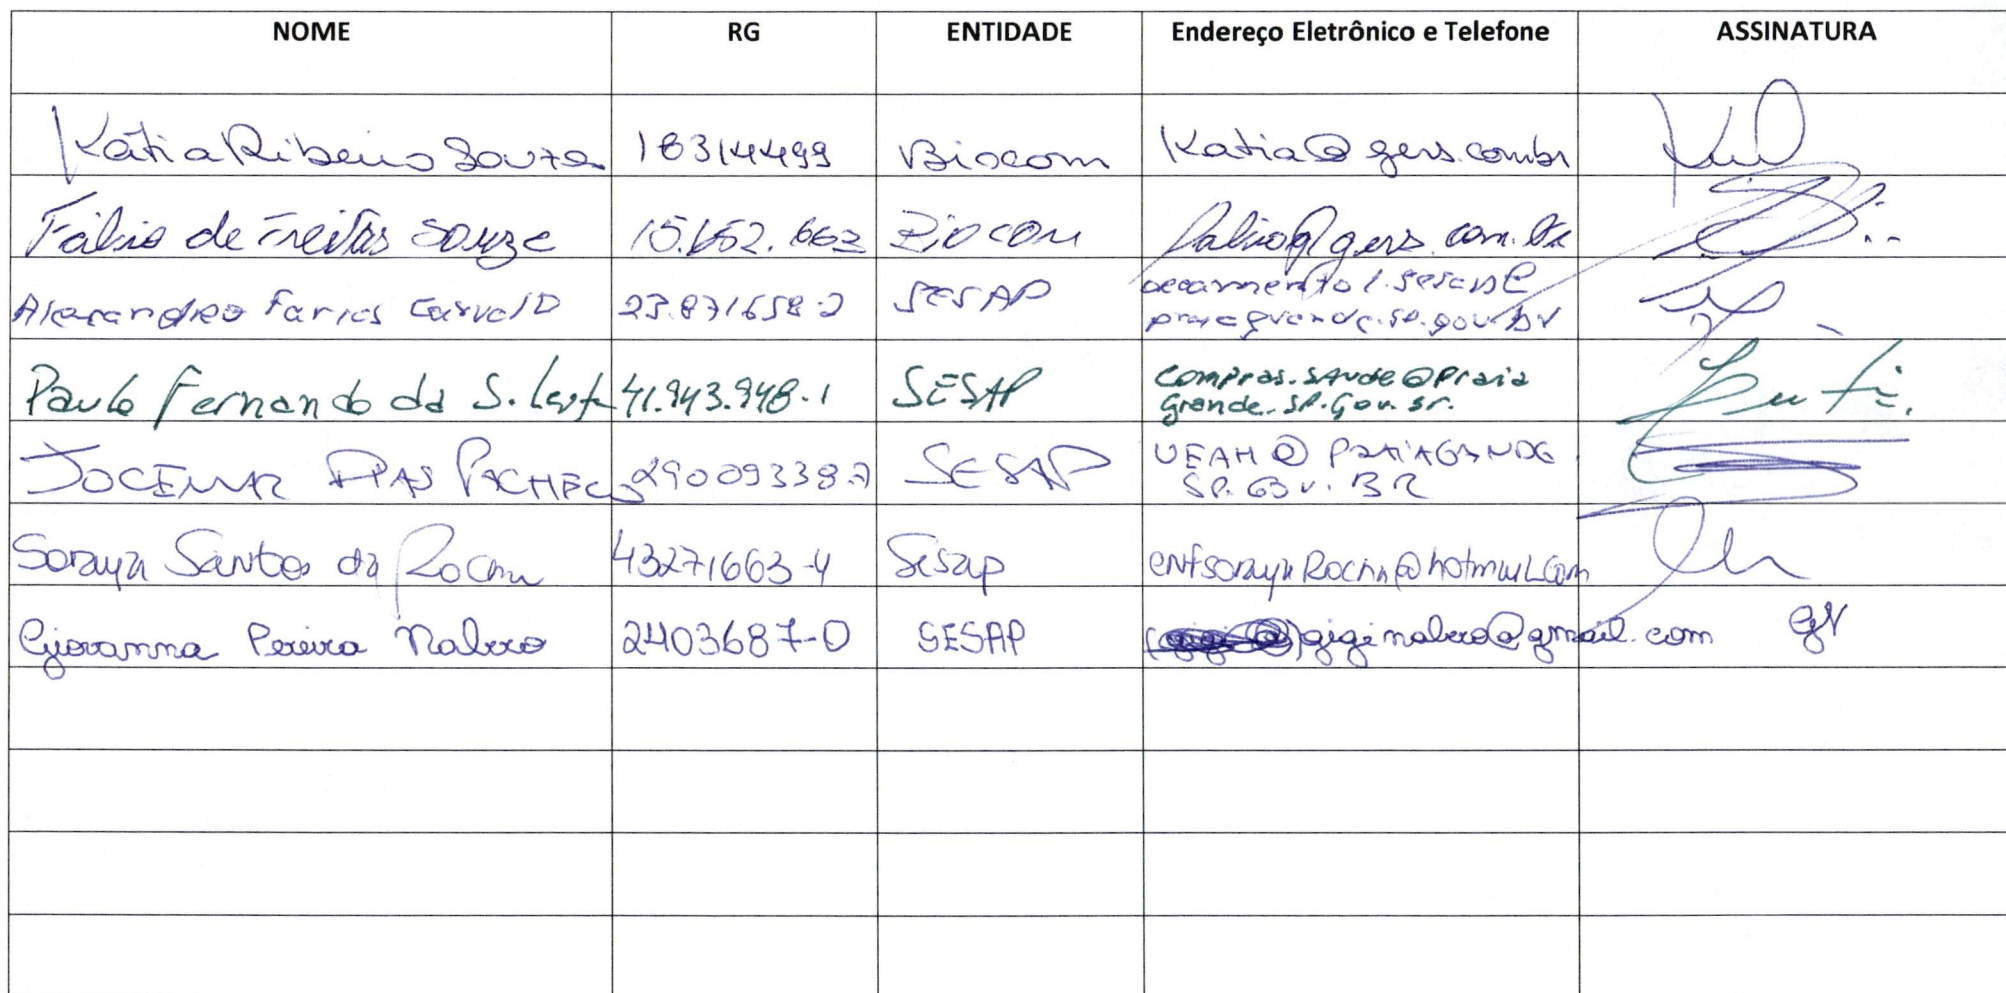 NOME RG ENTIDADE Endereço Eletrônico e Telefone ASSINATURA
Kátia Ribeiro Souza 18314499 Biocom Katia@gers.combr
Fábio de Freitas Souza 15.652.663 Biocom fabio@gers.com.br
Alexandro Farias Carvalo 23.871658-2 SESAP
praiagrande.sp.gov.br
Paulo Fernando da S. 41.943.948-1 SESAP Compras.saude@Praia
Grande.SP.Gov.br.
JOCEMAR DIAS PACHECO 29009338-7 SESAP UEAH@PRAIAGRANDE
SP.GOV.BR
Soraya Santos da Rocha 43271663-4 Sesap enfsorayaRocha@hotmail.com
Giovanna Pereira Nabero 2403687-0 SESAP giginabero@gmail.com GN